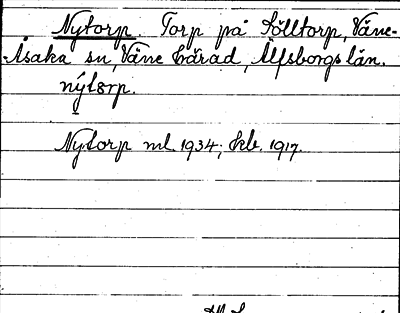 Nytorp. Torp på Sölltorp, Väne-
Åsaka sn, Väne härad, Älfsborgs län.
nýtørp.
Nytorp ml. 1934; Ekb. 1917.